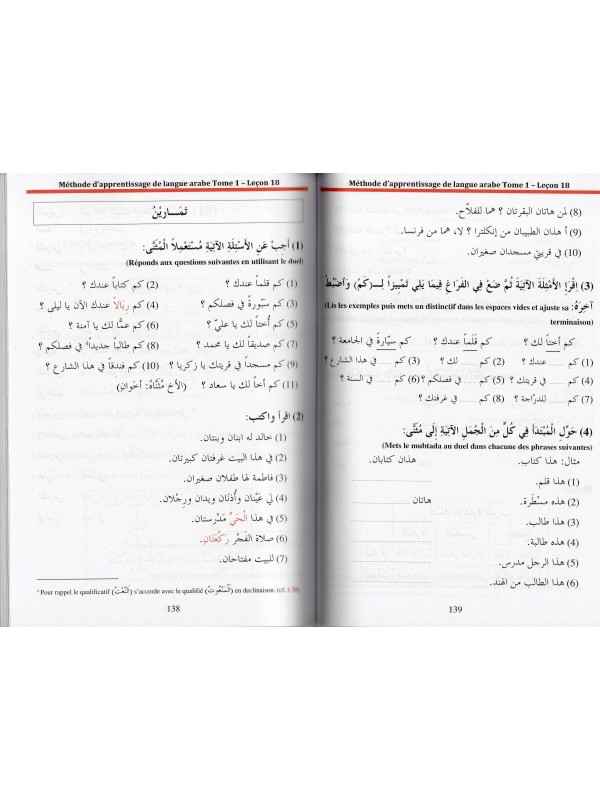 Méthode d'apprentissage de langue arabe Tome 1 – Leçon 18
تَمَــارِيْنُ
(1) أَجِبْ عَنِ الأَسْئِلَةِ الآتِيَةِ مُسْتَعْمِلاً الْمُثَنَّى:
(Réponds aux questions suivantes en utilisant le duel)
(1) كم قلماً عندك ؟ (2) كم كتاباً عندك ؟
(3) كم سبّورةً في فصلكم ؟ (4) كم رِيَالاً عندك الآن يا ليلى ؟
(5) كم أُختاً لك يا عليّ ؟ (6) كم عمًّا لك يا آمنة ؟
(7) كم صديقاً لك يا محمد ؟ (8) كم طالباً جديداً⁴ في فصلكم ؟
(9) كم مسجداً في قريتك يا زكريا ؟ (10) كم فندقاً في هذا الشارع ؟
(11) كم أخاً لك يا سعاد ؟ (الأخ مُثَنَّاهُ: أخَوانِ)
(2) اقرأ واكتب:
(1) خالد له ابنان وبنتان.
(2) في هذا البيت غرفتان كبيرتان.
(3) فاطمة لها طفلان صغيران.
(4) لي عَيْنَان وأُذنَان ويدان ورِجْلان.
(5) في هذا الْحَيِّ مَدْرستان.
(6) صلاة الفَجْر رَكْعَتَانِ.
(7) للبيت مفتاحان.
⁴ Pour rappel le qualificatif (النَّعْتُ) s'accorde avec le qualifié (الْمَنْعُوتُ) en declinaison. (cf.
138
Méthode d'apprentissage de langue arabe Tome 1 – Leçon 18
(8) لمن هاتان البقرتان ؟ هما للفلاّح.
(9) أ هذان الطبيبان من إنكلترا ؟ لا، هما من فرنسا.
(10) في قريتي مسجدان صغيران.
(3) اِقْرَإِ الأَمْثِلَةَ الآتِيَةَ ثُمَّ ضَعْ فِي الفَرَاغِ فِيمَا يَلِي تَمْيِيزاً لِــرَكَمْ) وَاضْبِطْ
آخِرَهُ: (Lis les exemples puis mets un distinctif dans les espaces vides et ajuste sa
terminaison)
كم أختاً لك ؟ كم قَلَماً عندك ؟ كم سيّارةً في الجامعة ؟
(1) كم ..... عندك ؟ (2) كم ..... لك ؟ (3) كم ..... في هذا الشارع ؟
(4) كم ..... في قريتك ؟ (5) كم ..... في فصلكم ؟ (6) كم ..... في السنة ؟
(7) كم ..... للدرّاجة ؟ (8) كم ..... في غرفتك ؟
(4) حَوِّلِ الْمُبْتَدَأَ فِي كُلٍّ مِنَ الْجُمَلِ الآتِيَةِ إِلَى مُثَنًّى:
(Mets le mubtada au duel dans chacune des phrases suivantes)
مثال: هذا كتاب. هذان كتابان.
(1) هذا قلم.
(2) هذه مسْطَرة. هاتان
(3) هذا طالب.
(4) هذه طالبة.
(5) هذا الرجل مدرس.
(6) هذا الطالب من الهند.
139